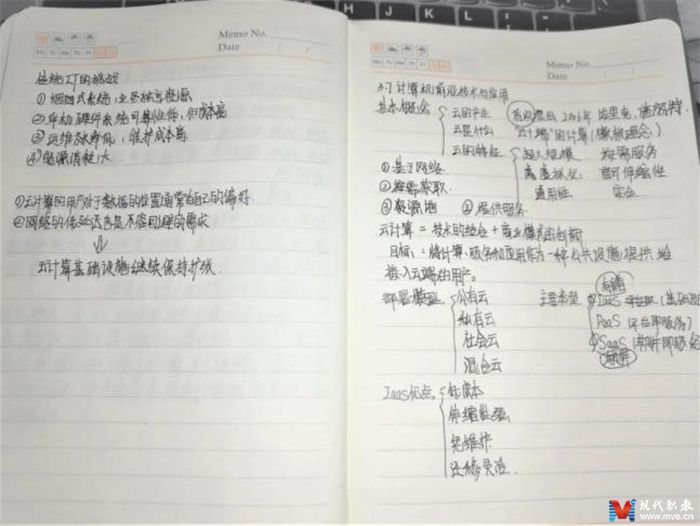 Memo No.
Date
Mo Tu We Th Fr
传统IT的挑战
①烟囱式系统,业务独享资源
②单机硬件系统可靠性佳,但成本高
③运维效率低,维护成本高
④能源消耗大
①云计算的用户对于数据的位置通常有自己的偏好.
②网络的低延迟也是不容忽视的需求
云计算基础设施继续保持扩线.
Memo No.
Date
Mo Tu We Th Fr
3.7 计算机前沿技术与应用
基本概念
云的产生
2006年
云是什么
云的特征
超大规模 按需服务
高虚拟化 高可伸缩性
通用性 安全
①基于网络
②按需获取
③资源池 ④提供服务
云计算 = 技术的结合 + 商业模式的创新
目标:将计算、服务和应用作为一种公共设施提供给
接入云端的用户。
部署模型
公有云
私有云
社会云
混合云
主要类型
IaaS
PaaS (平台即服务)
SaaS (软件即服务
IaaS优点
低成本
伸缩性强
免维护
迁移灵活.
现代职教
www.mvo.cn